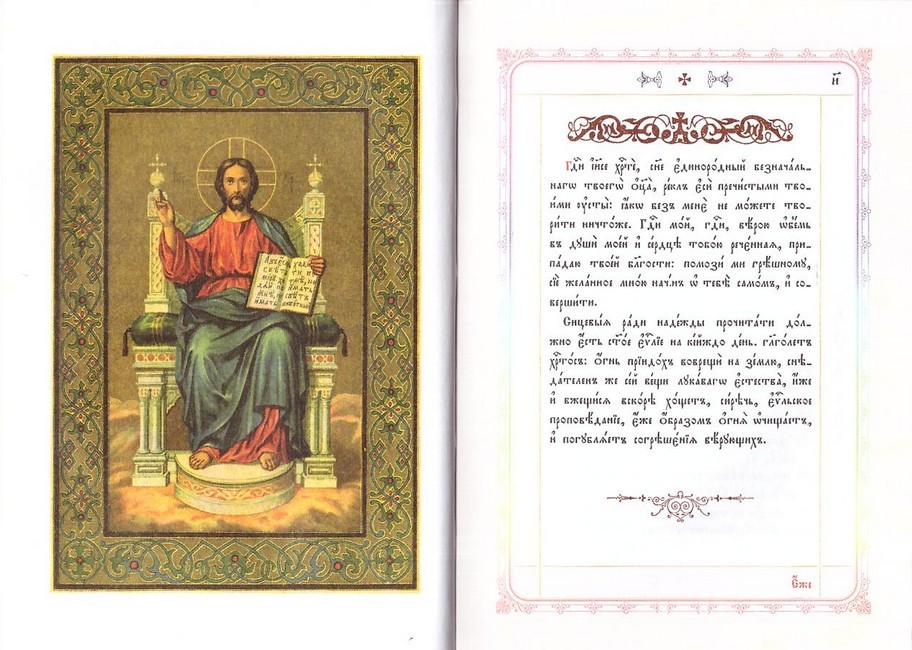 Азъ есмь
свѣтъ
и҃
Гдⷭ҇и і҆и҃се хрⷭ҇те́, сн҃е є҆диноро́дный безнача́ль-
нагѡ твоегѡ̀ ѻ҆ц҃а̀, ре́клъ є҆сѝ пречи́стыми тво-
и́ми ѹ҆сты̀: ꙗ҆́кѡ без̾ менє̀ не мо́жете тво-
ри́ти ничто́же. Гдⷭ҇и мо́й, гдⷭ҇и, вѣ́рою ѡ҆бе́мь
въ дꙋшѝ мое́й и҆ се́рдцѣ тобо́ю рече́нная, при-
па́даю твое́й бл҃гости: помозѝ ми грѣ́шномꙋ,
сїѐ жела́нное мно́ю нача́нъ ѡ҆ тебѣ̀ само́мъ, и҆ со-
верши́ти.
Сицевы́ѧ ра́ди наде́жды прочита́ти до́л-
жно є҆́сть ст҃о́е є҆ѵⷢ҇лїе на кі́йждо де́нь. гл҃го́летъ
хрⷭ҇то́съ: ѻ҆́гнь прїидо́хъ воврещѝ на зе́млю, снѣ-
да́теленъ же се́й ве́щи лꙋка́вагѡ є҆стества̀, и҆́же
и҆ вжещи́сѧ вско́рѣ хо́щетъ, си́рѣчь, є҆ѵⷢ҇льское
проповѣ́данїе, є҆́же ѻ҆́бразомъ ѻ҆гнѧ̀ ѡ҆чища́етъ,
и҆ погꙋблѧ́етъ согрѣше́нїѧ вѣ́рꙋющихъ.
Є҆́же